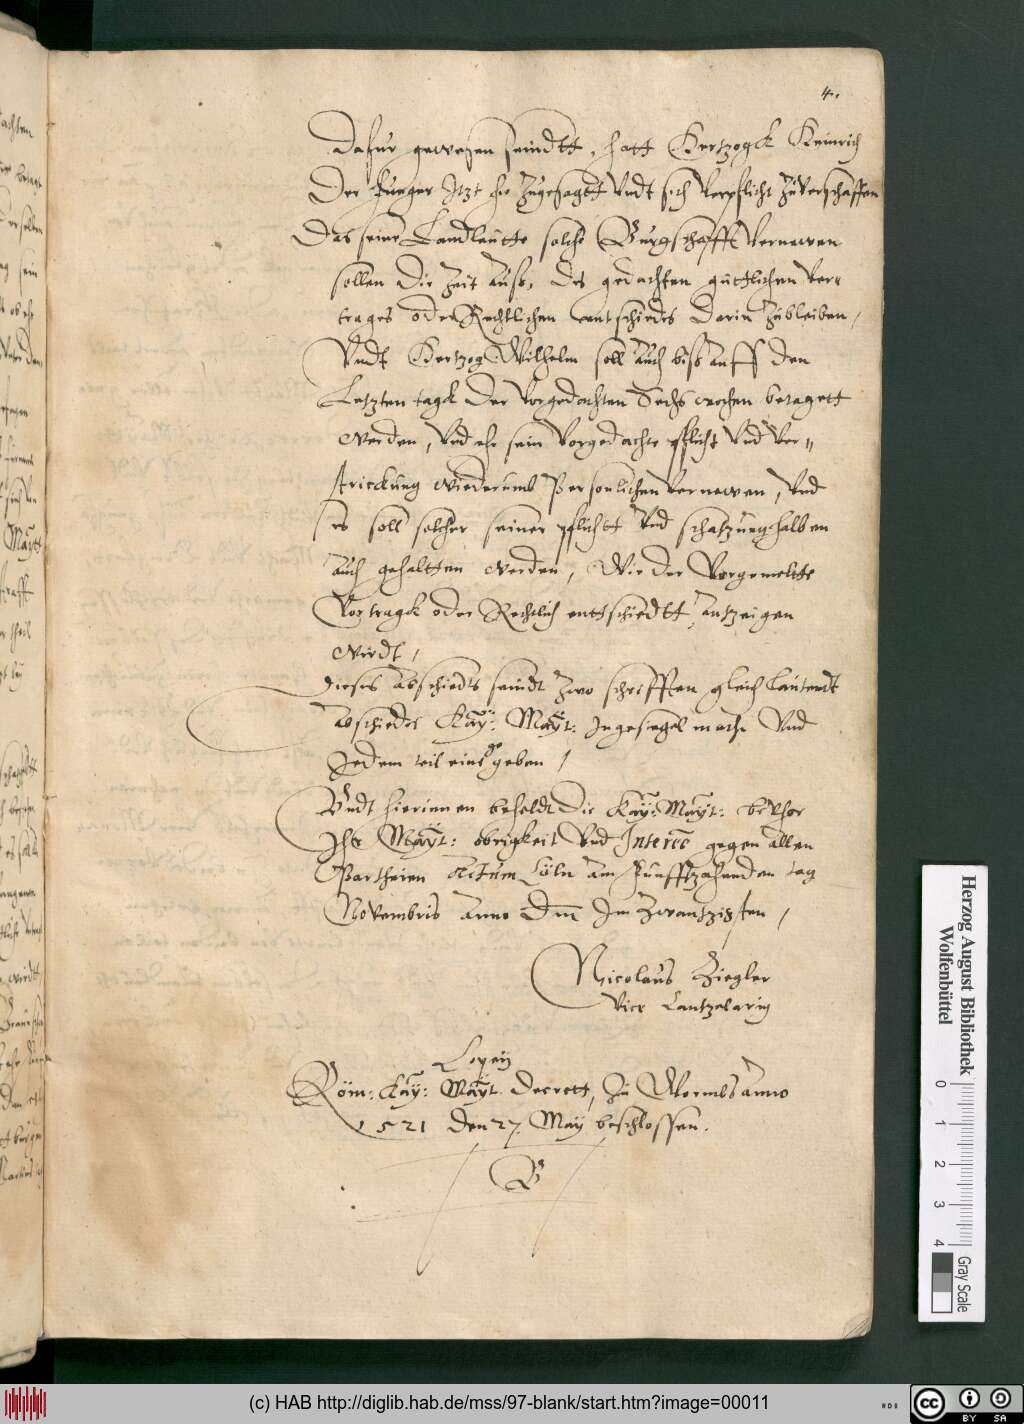 4.
Dafur gewesen seindtt, hatt Hertzogk Heinrich
Der Junger Itzt hie zugesagtt Vndt sich Verpflicht zuverschaffen
Das seine Landleutte solche Burgschafft Vernewen
sollen die Zeit Auß, des gedachten guttlichen Ver-
trages oder Rechtlichen entschiedts darin zubleiben,
Vndt Hertzog Wilhelm soll Auch biß Auff den
Letzten tagk der Vorgedachten Sechs wochen betagett
werden, Vnd ehr sein Vorgedachte pflicht Vnd Ver-
strickung wiederumb Personlichen Vernewen, Vnd
es soll solcher seiner pflichtt Vnd schatzung halben
Auch gehaltten werden, Wie der Vorgemeltte
Vortragk oder Rechtlich entschiedtt Antzeigen
wirdt,
Dieses Abschiedts seindt zwo schrifften gleich lautendt
Abschiedes Kay: Mayt: Ingesiegel mache Vnd
Jedem teil eins geben,
Vndt hierinnen beheldt Die Kay: Mayt: beVhor
Ihr Mayt: obrigkeit Vnd Interesse gegen Allen
Partheien Actum Cöln Am Funfftzehenden tag
Novembris Anno Dni Im Zwantzigsten,
Nicolaus Ziegler
Vice Cantzelarig
Copey
Röm: Kay: Mayt Decrett, Zu Wormbs Anno
1521 den 27. May beschlossen.
B
Mayt
Herzog August Bibliothek
Wolfenbüttel
0
1
2
3
4
Gray Scale
(c) HAB http://diglib.hab.de/mss/97-blank/start.htm?image=00011
cc
BY SA